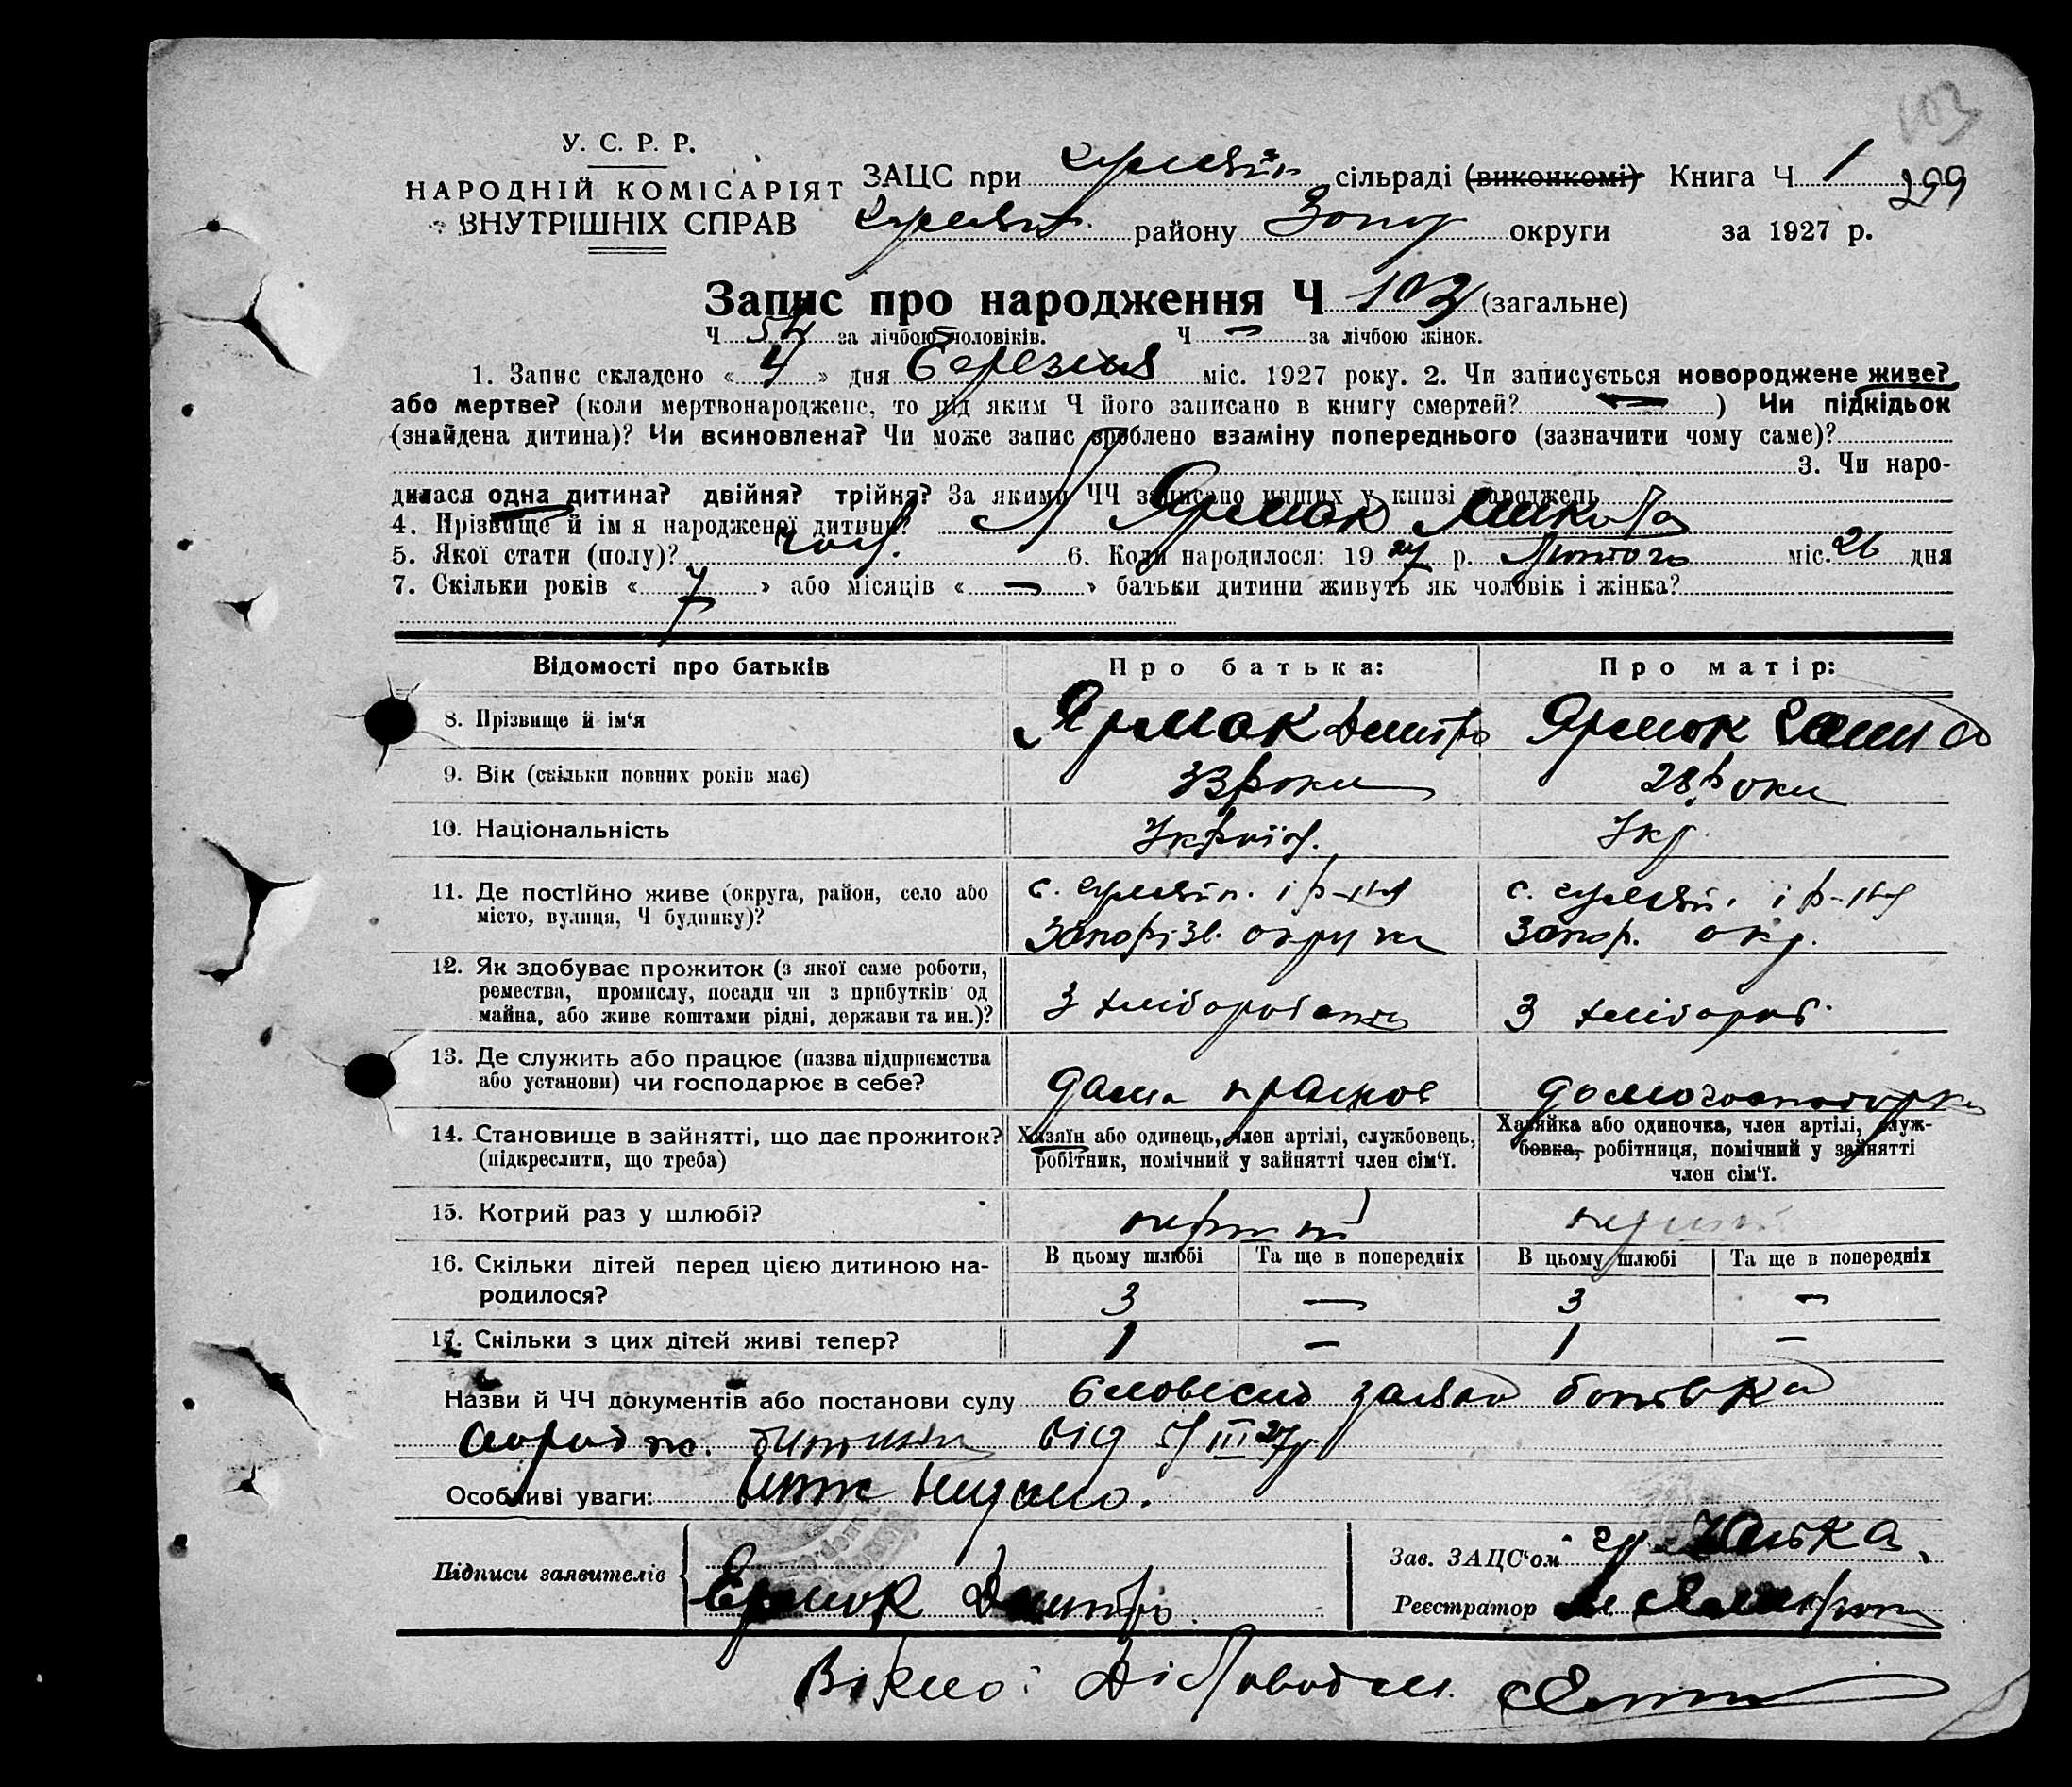 103
У. С. Р. Р.
НАРОДНІЙ КОМІСАРІЯТ
ВНУТРІШНІХ СПРАВ
ЗАЦС при сільраді (виконкомі) Книга Ч 1
299
району Запор округи за 1927 р.
Запис про народження Ч 103 (загальне)
Ч 54 за лічбою чоловіків. Ч — за лічбою жінок.
1. Запис складено « 4 » дня Березня міс. 1927 року. 2. Чи записується новороджене живе?
або мертве? (коли мертвонароджене, то під яким Ч його записано в книгу смертей? — ) Чи підкідьок
(знайдена дитина)? Чи всиновлена? Чи може запис зроблено взаміну попереднього (зазначити чому саме)?
3. Чи наро-
дилася одна дитина? двійня? трійня? За якими ЧЧ записано инших у книзі народжень
4. Прізвище й ім я народженої дитини? Ярмак Микола
5. Якої стати (полу)? чол. 6. Коли народилося: 19 27 р. Лютого міс. 26 дня
7. Скільки років « 7 » або місяців « — » батьки дитини живуть як чоловік і жінка?
Відомості про батьків Про батька: Про матір:
8. Прізвище й ім‘я Ярмак Дмитро Ярмак
9. Вік (скільки повних років має) 33 роки 28 роки
10. Національність Україн. Укр.
11. Де постійно живе (округа, район, село або с. і р-ну с. і р-ну
місто, вулиця, Ч будинку)? Запоріз. округи Запор. окр.
12. Як здобуває прожиток (з якої саме роботи,
ремества, промислу, посади чи з прибутків од З хліборобства З хлібороб.
майна, або живе коштами рідні, держави та ин.)?
13. Де служить або працює (назва підприємства
або установи) чи господарює в себе? дома працює домогосподарка
14. Становище в зайнятті, що дає прожиток? Хазяїн або одинець, член артілі, службовець, Хазяйка або одиночка, член артілі, служ-
(підкреслити, що треба) робітник, помічний у зайнятті член сім‘ї. бовка, робітниця, помічний у зайнятті
член сім‘ї.
15. Котрий раз у шлюбі? перший перший
16. Скільки дітей перед цією дитиною на- В цьому шлюбі Та ще в попередніх В цьому шлюбі Та ще в попередніх
родилося? 3 — 3 —
17. Скільки з цих дітей живі тепер? 1 — 1 —
Назви й ЧЧ документів або постанови суду словесна заява батька
від III 27 р.
Особливі уваги: видано.
Підписи заявителів Ермак Дмитро
Зав. ЗАЦС‘ом
Реєстратор
Вірно: Діловод